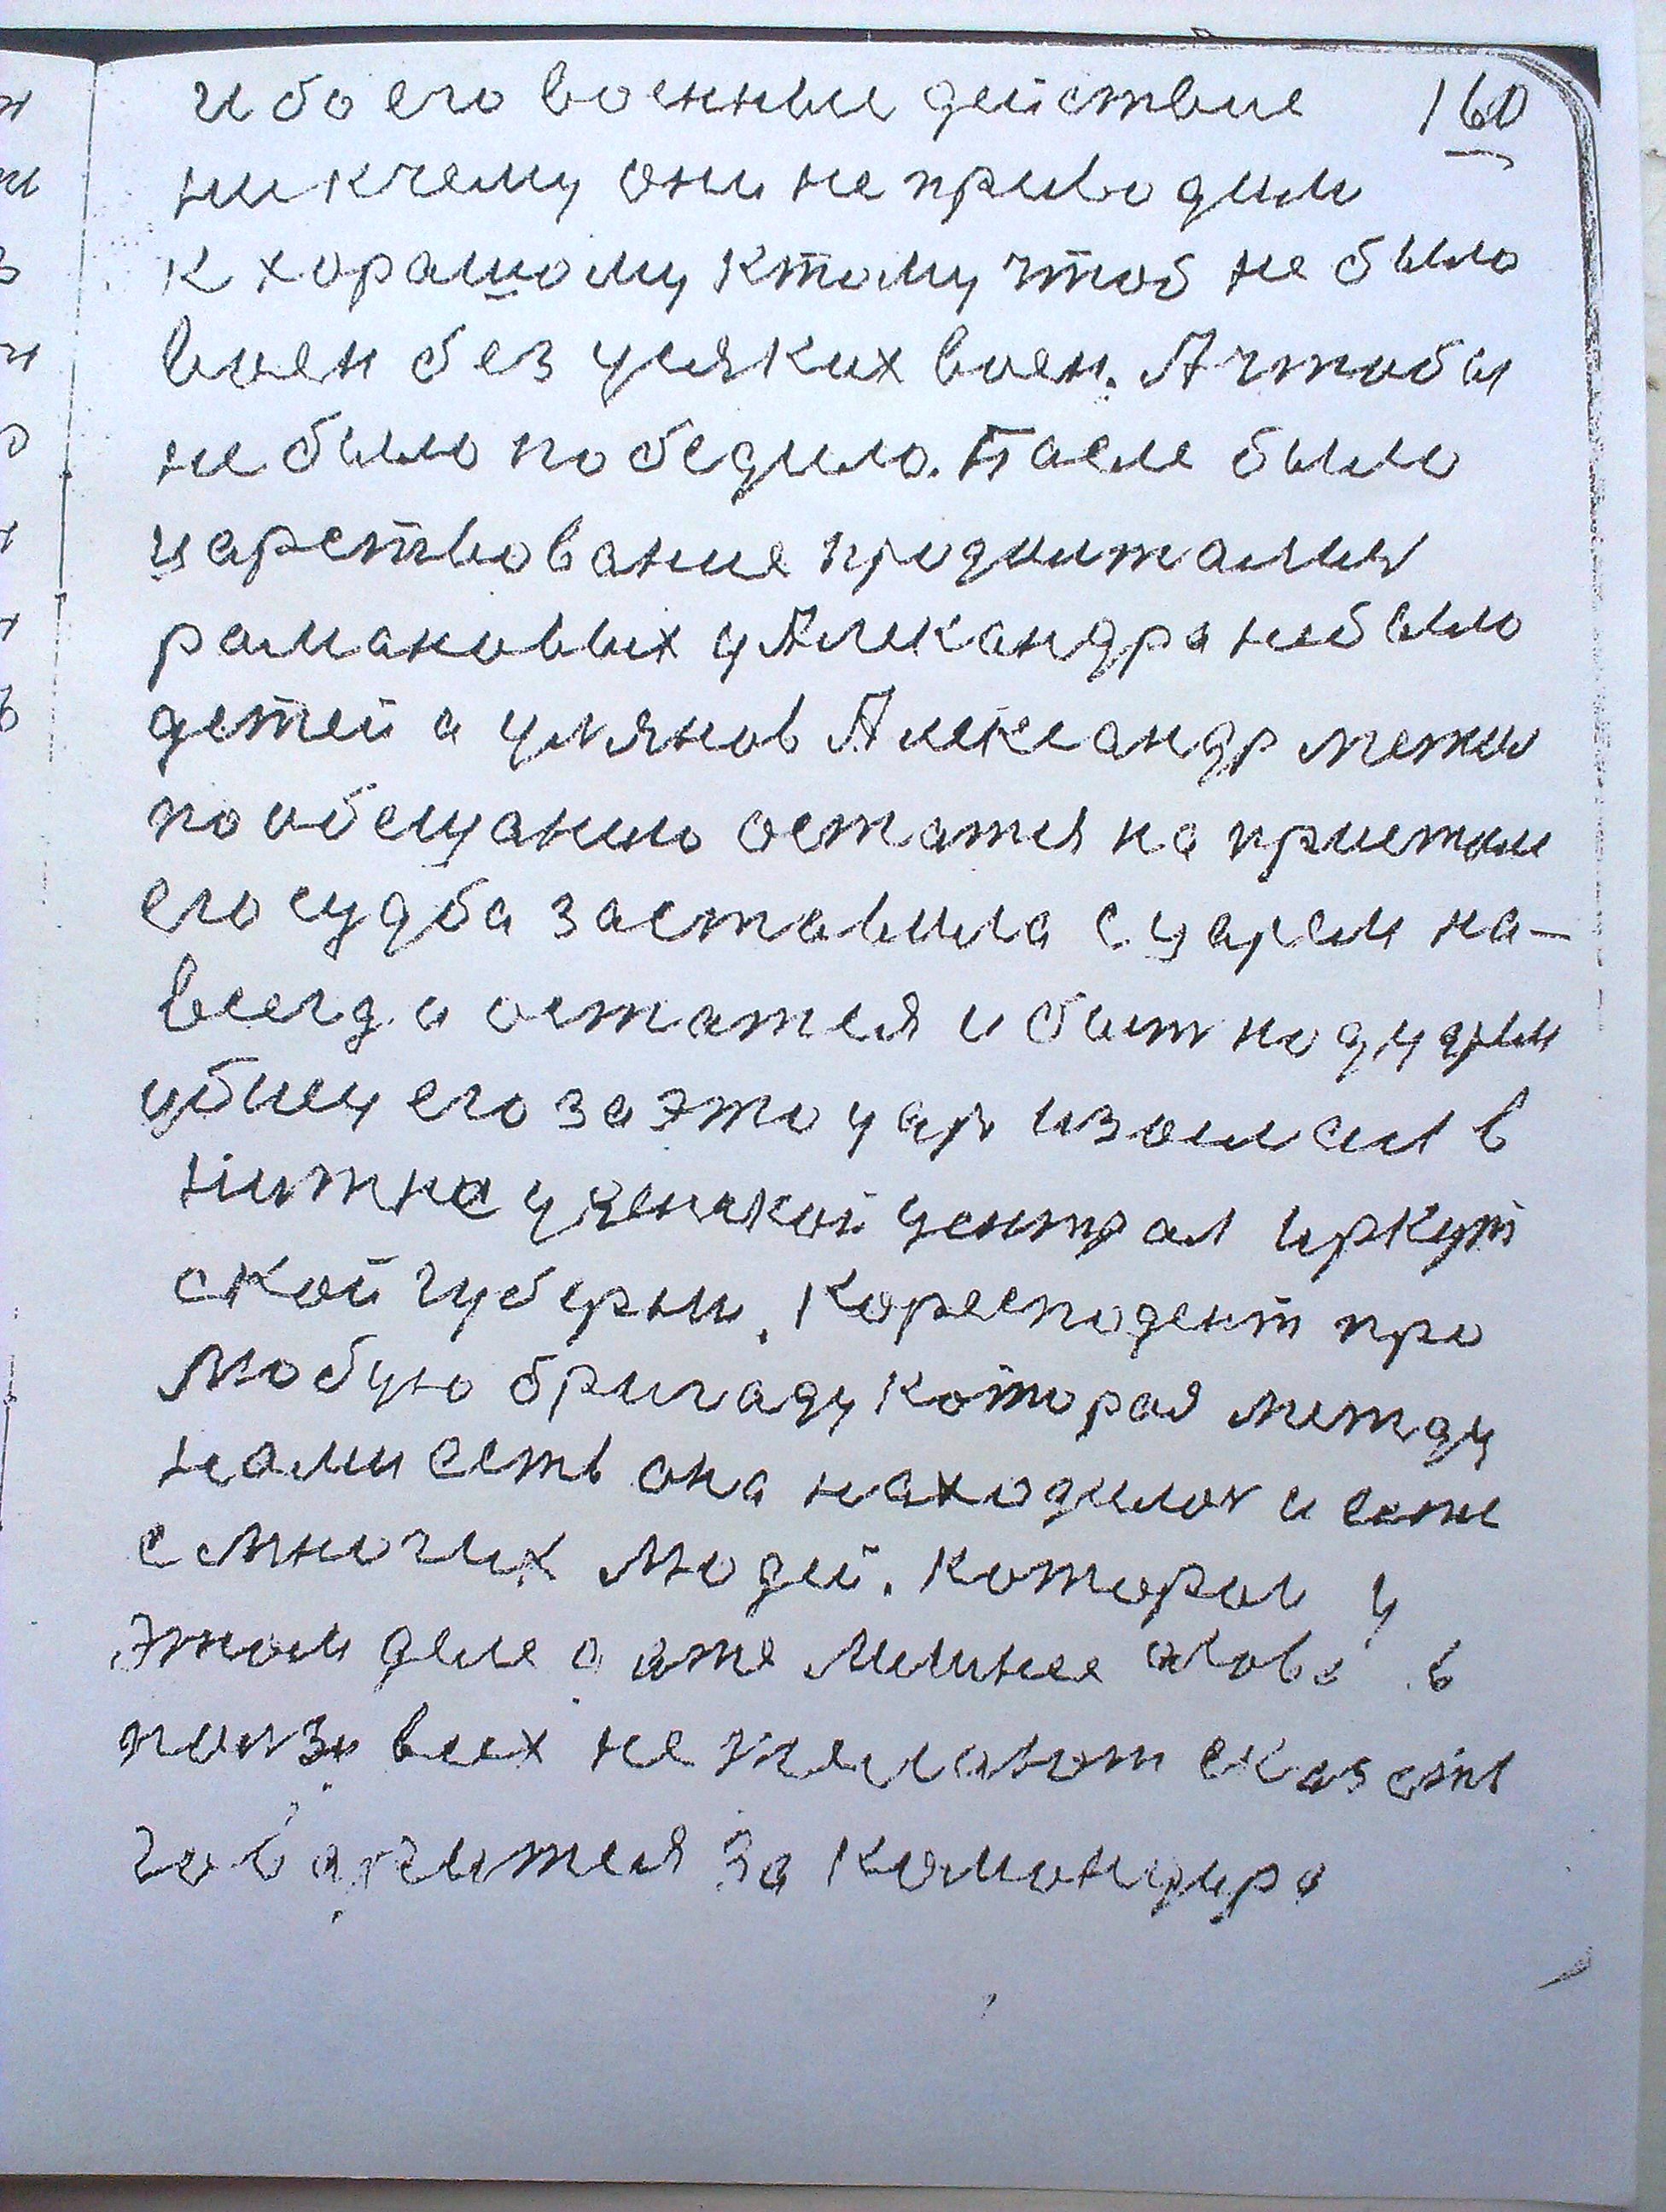 и бо его военные действие 160
ни кчему они не приводили
к хорашому ктому чтоб не было
воен без усяких воен. А чтобы
не было победило. После было
царствование
рамановых у Александра небыло
детей а улянов Александр
по обещанию остатся на
его судба заставила с царем на-
всегда остатся и бит
убиец его за это цар изослал в
централ иркут
ской губерни. Коресподент про
любую бригаду которая между
нами есть она находилас и
с многих людей. которои у
этом деле даже слова в
ползу всех не желают сказать
за командира